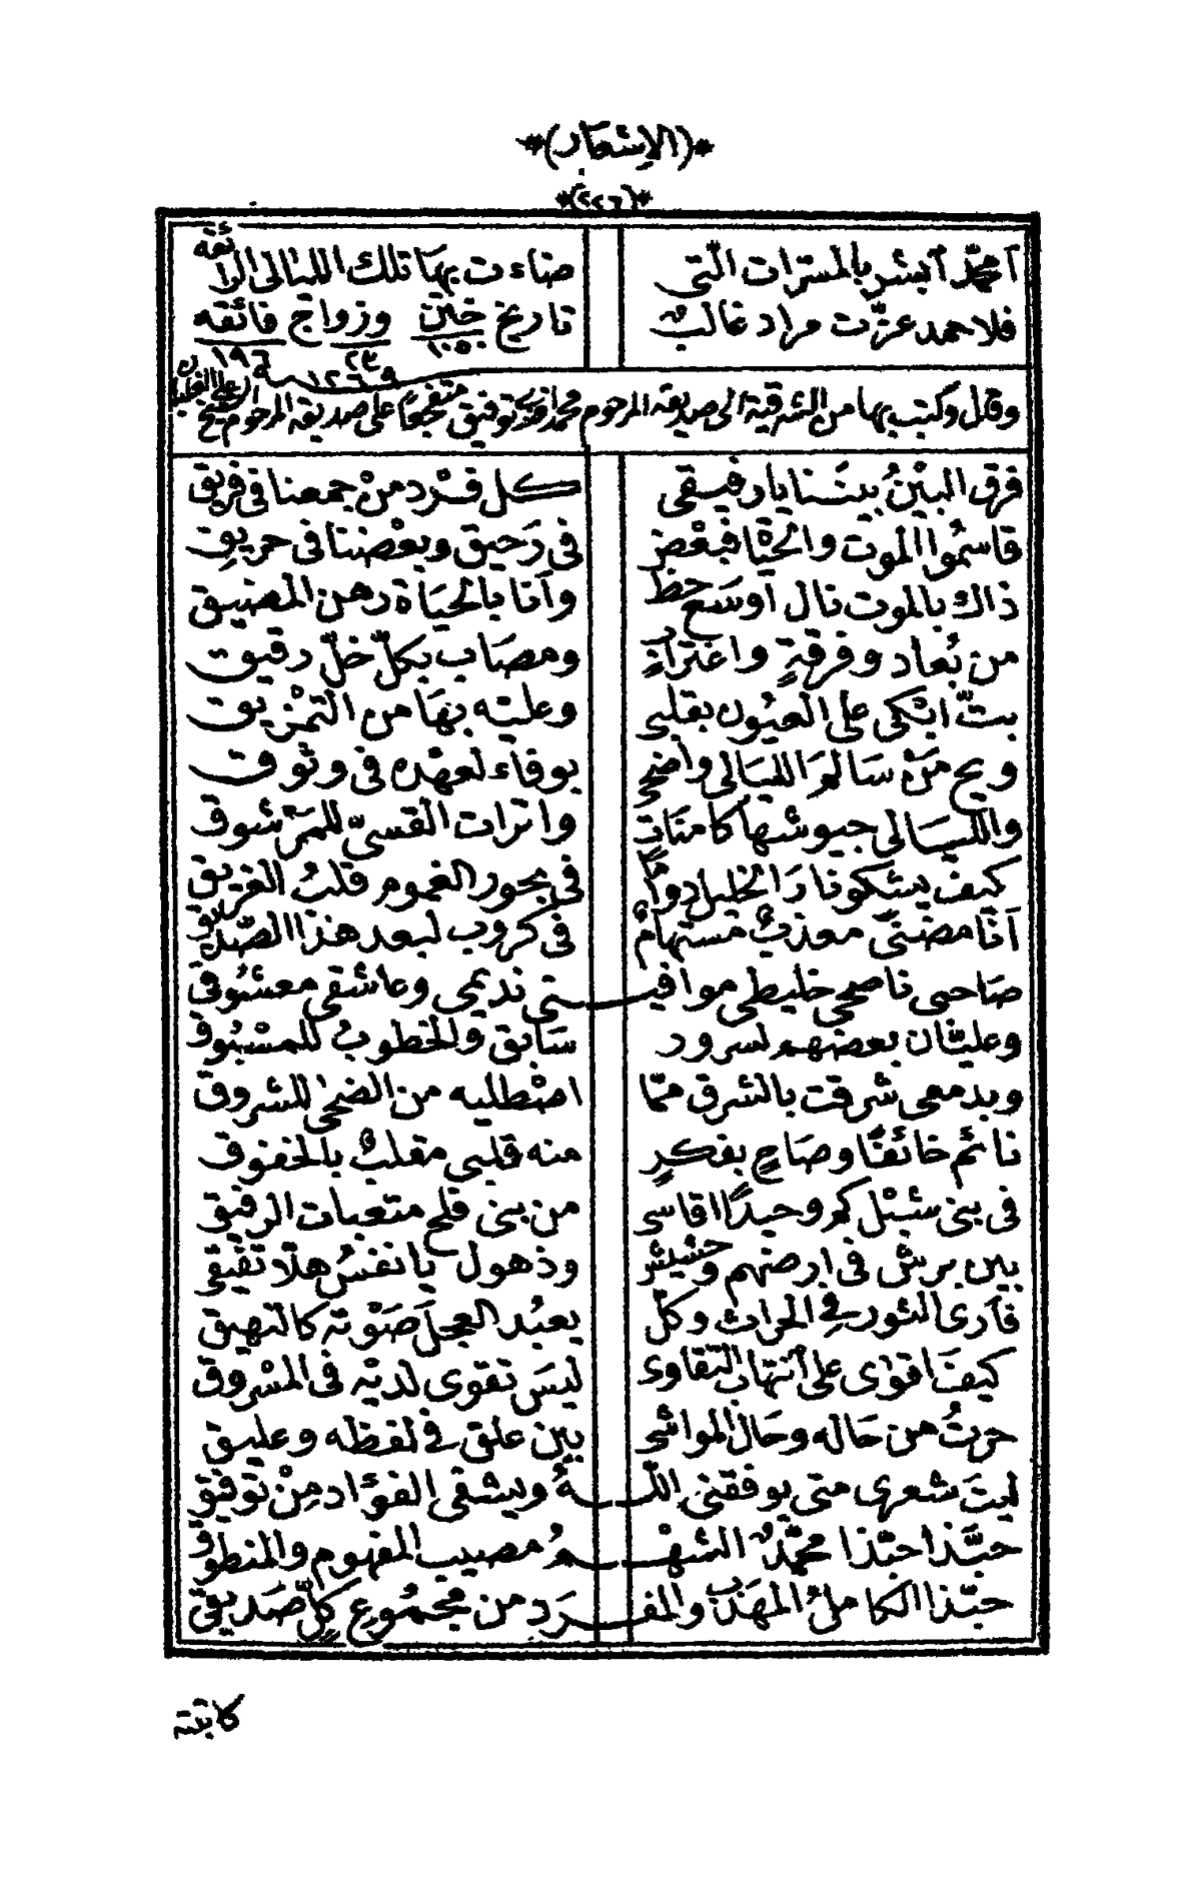 *(الاشعار)*
*(٢٢٦)*
آمحمّد آبشر بالمسرّات الّتى ضاءت بهَا تلك الليالى الرائقه
فلاحمد عزّت مراد غالبٌ تاريخ ختن وزواج فائقه
١٠٥٠ ٢٣ ١٩٦
١٢٦٩ سنة
وقال وكتب بها من الشرقية الى صديقه المرحوم محمد افندى توفيق متفجعًا على صديقه المرحوم الشيخ على
فرق البيْنُ بيتَنا يا رفيقى كل فرْد منْ جمعنا فى فريق
قاسمُوا الموت والحيَٰا فبعْض فى رَحيق وبعْضنا فى حريقِ
ذاك بالموت نال اوسَع حظ وآنا بالحيَاة رهن المضيق
من بُعاد وفرقةٍ واغترابٍ ومصَاب بكلّ خلّ رقيق
بتّ ابْكى على العيُون بقلبى وعليْه بهَا من التمْزيق
ويح مَنْ سَالمَ الليَالى واضحى بوفاء لعهْده فى وثوق
والليَالى جيوشها كامنَات واترات القسىّ للمَرْشوق
كيف يشكو نارَ الخليل دوامًا فى بحور الغموم قلبُ الغريق
آنَا مضنىً معذبٌ مستهامٌ فى كروب لبعد هذا الصّديق
صَاحبى ناصحى خليطى موافيـــتى نديمى وعاشقى معشوُقى
وعليّان بعضهم لسرور سَابق والخطوبُ للمسْبُوق
وبدمعى شرقت بالشرق ممّا اصْطليه من الضحىٰ للشروق
نائم خائفًا وصَاحٍ بفكرٍ منه قلبى مقلبٌ بالخفوق
فى بنى شبْل كم وحيدًا اقاسى من بنى قلح متعبات الرفيق
بين برش فى ارضهم وحشيش وذهول يا نفسُ هلّا تفيقى
فآرى الثور فى الحراث وكلّ يعبُد العجلَ صَوْته كالنهيق
كيفَ اقوٰى على آنتهاب التقاوى ليسَ تقوى لديْه فى المسْروق
حرتُ من حَاله وحَال المواشى بين علق فى لفظه وعليق
ليتَ شعرى متى يوفقنى اللّـــهُ ويشفى الفؤاد مِنْ توفيق
حبَّذا حبّذا محمّدٌ الشهْـــمُ مصيب المفهوم والمنطوق
حبّذا الكاملُ المهَذب والمفـــرَد من مجمُوع كلّ صَديق
كاتبته